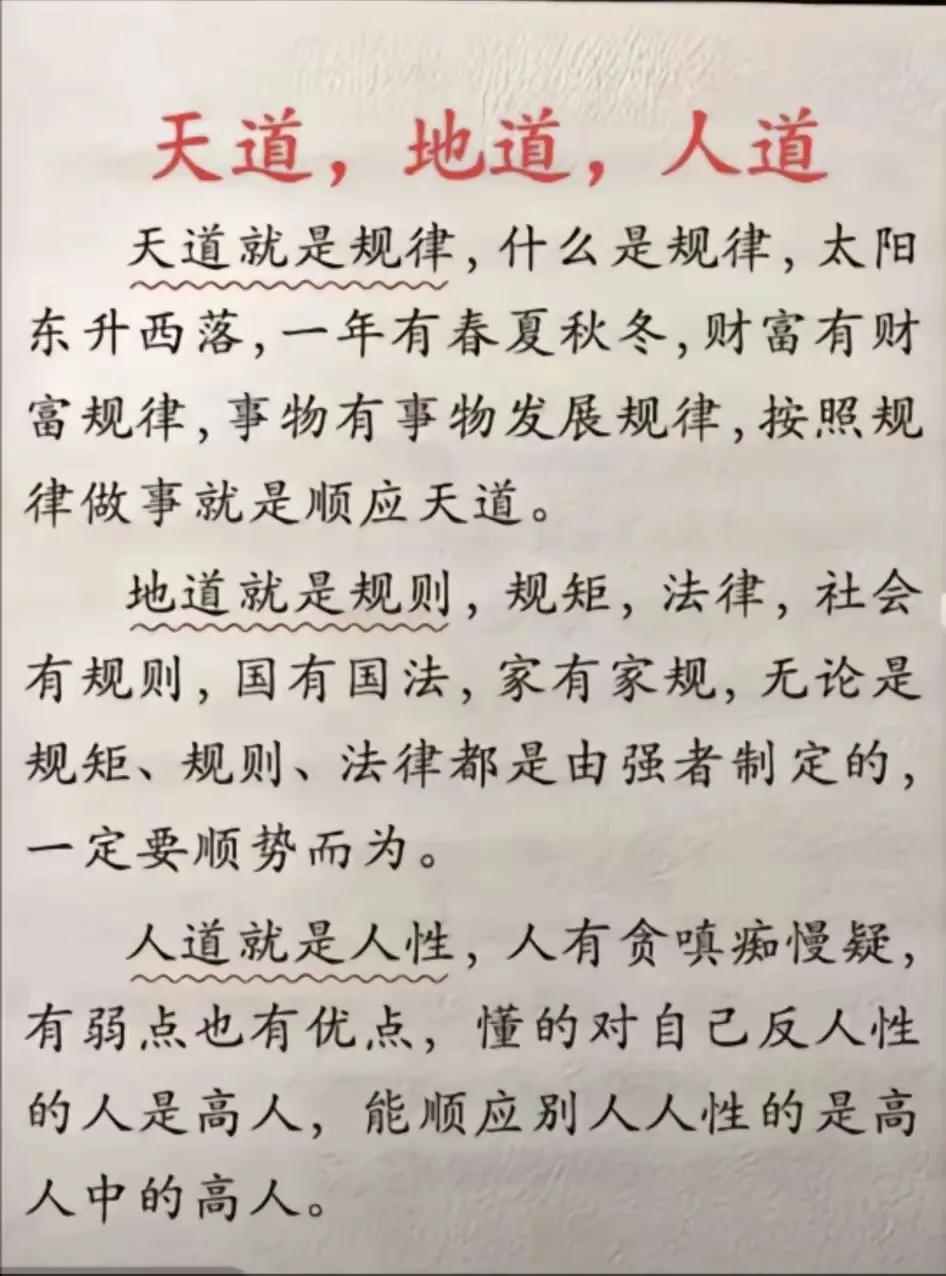 天道，地道，人道
天道就是规律，什么是规律，太阳
东升西落，一年有春夏秋冬，财富有财
富规律，事物有事物发展规律，按照规
律做事就是顺应天道。
地道就是规则，规矩，法律，社会
有规则，国有国法，家有家规，无论是
规矩、规则、法律都是由强者制定的，
一定要顺势而为。
人道就是人性，人有贪嗔痴慢疑，
有弱点也有优点，懂的对自己反人性
的人是高人，能顺应别人人性的是高
人中的高人。